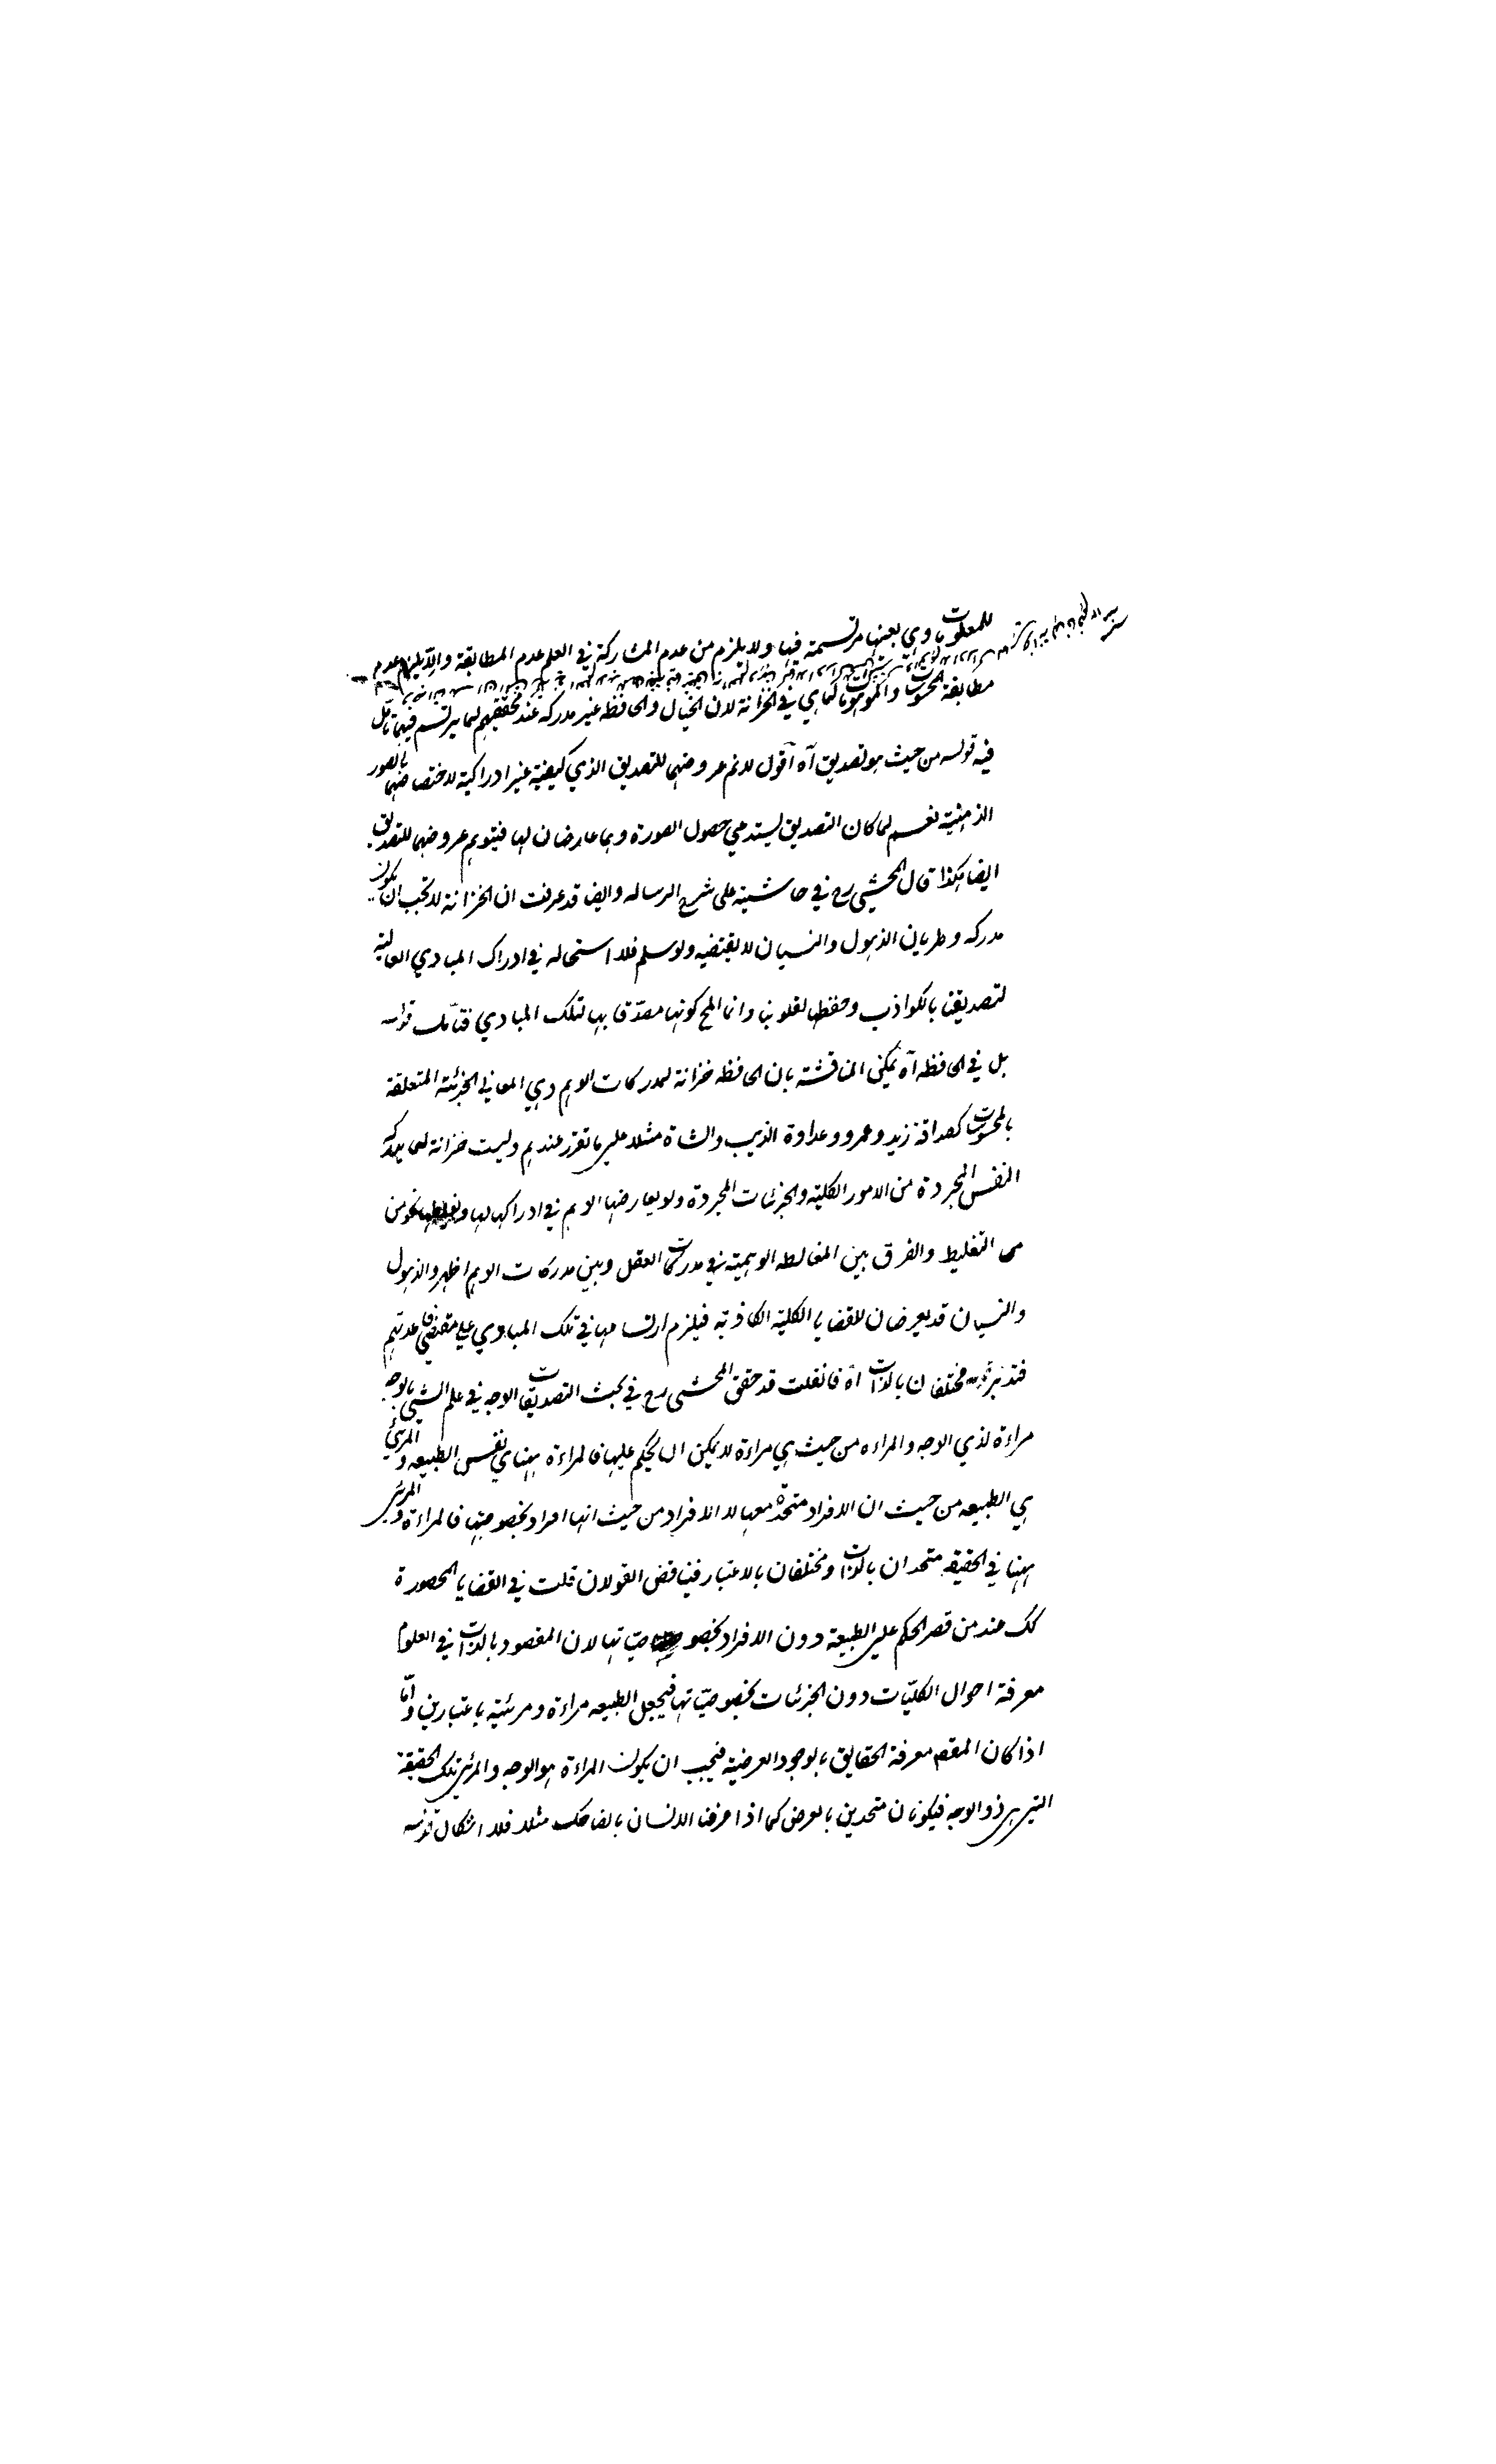 للمعلومات وهي بعينها مرتسمة فيها ولا يلزم من عدم المشاركة في العلم عدم المطابقة والا يلزم عدم
مطابقة المحسوسات والموهومات لما هي في الخزانة لان الخيال والحافظه غير مدركه عند محققيهم لما يرتسم فيهما تامل
فيه قوله من حيث هو تصديق آه اقول لانم عروضهما للتصديق الذي كيفية غير ادراكية لاختصاصهما بالصور
الذهنية نعم لما كان التصديق يستدعي حصول الصورة وهما عارضان لها فيتوهم عروضهما للتصديق
ايضا هكذا قال المحشي رح في حاشيته على شرح الرساله وايضا قد عرفت ان الخزانة لا يجب ان يكون
مدركه وطريان الذهول والنسيان لا يقتضيه ولو سلم فلا استحاله في ادراك المبادي العالية
لتصديقنا بالكواذب وحفظها لقلوبنا وانما المح كونها مصدقا بها لتلك المبادي فتامل قوله
بل في الحافظه آه يمكن المناقشة بان الحافظه خزانة لمدركات الوهم وهي المعاني الجزئية المتعلقة
بالمحسوسات كصداقة زيد وعمرو وعداوة الذيب والشاة مثلا على ما تقرر عندهم وليست خزانة لما يدركه
النفس المجردة من الامور الكلية والجزئيات المجردة ولو يعارضها الوهم في ادراكها لها نحو من
من التغليط والفرق بين المغالطه الوهمية في مدركات العقل وبين مدركات الوهم اظهر والذهول
والنسيان قد يعرضان للقضايا الكلية الكاذبة فيلزم ارتسامها في تلك المبادي على مقتضى قاعدتهم
فتدبر قوله مختلفان بالذات آه فانقلت قد حقق المحشي رح في بحث التصديقات الوجه في علم الشئ بالوجه
مراءة لذي الوجه والمراءه من حيث هي مراءة لا يمكن ان يحكم عليها فالمراءة ههنا هي نفس الطبيعه والمرئي
هي الطبيعه من حيث ان الافراد متحدة معها لا الافراد من حيث انها افراد بخصوصيتها فالمراءة والمرئي
ههنا في الحقيقة متحدان بالذات ومختلفان بالاعتبار فيناقض القولان قلت في القضايا المحصورة
كك عند من قصر الحكم على الطبيعة دون الافراد بخصوصياتها لان المقصود بالذات في العلوم
معرفة احوال الكليات دون الجزئيات بخصوصياتها فيجعل الطبيعه مراءة ومرئية باعتبارين واما
اذا كان المقصم معرفة الحقايق بالوجود العرضية فيجب ان يكون المراءة هو الوجه والمرئي تلك الحقيقة
التي هي ذو الوجه فيكونان متحدين بالعرض كما اذا عرفنا الانسان بالضاحك مثلا فلا اشكال قوله